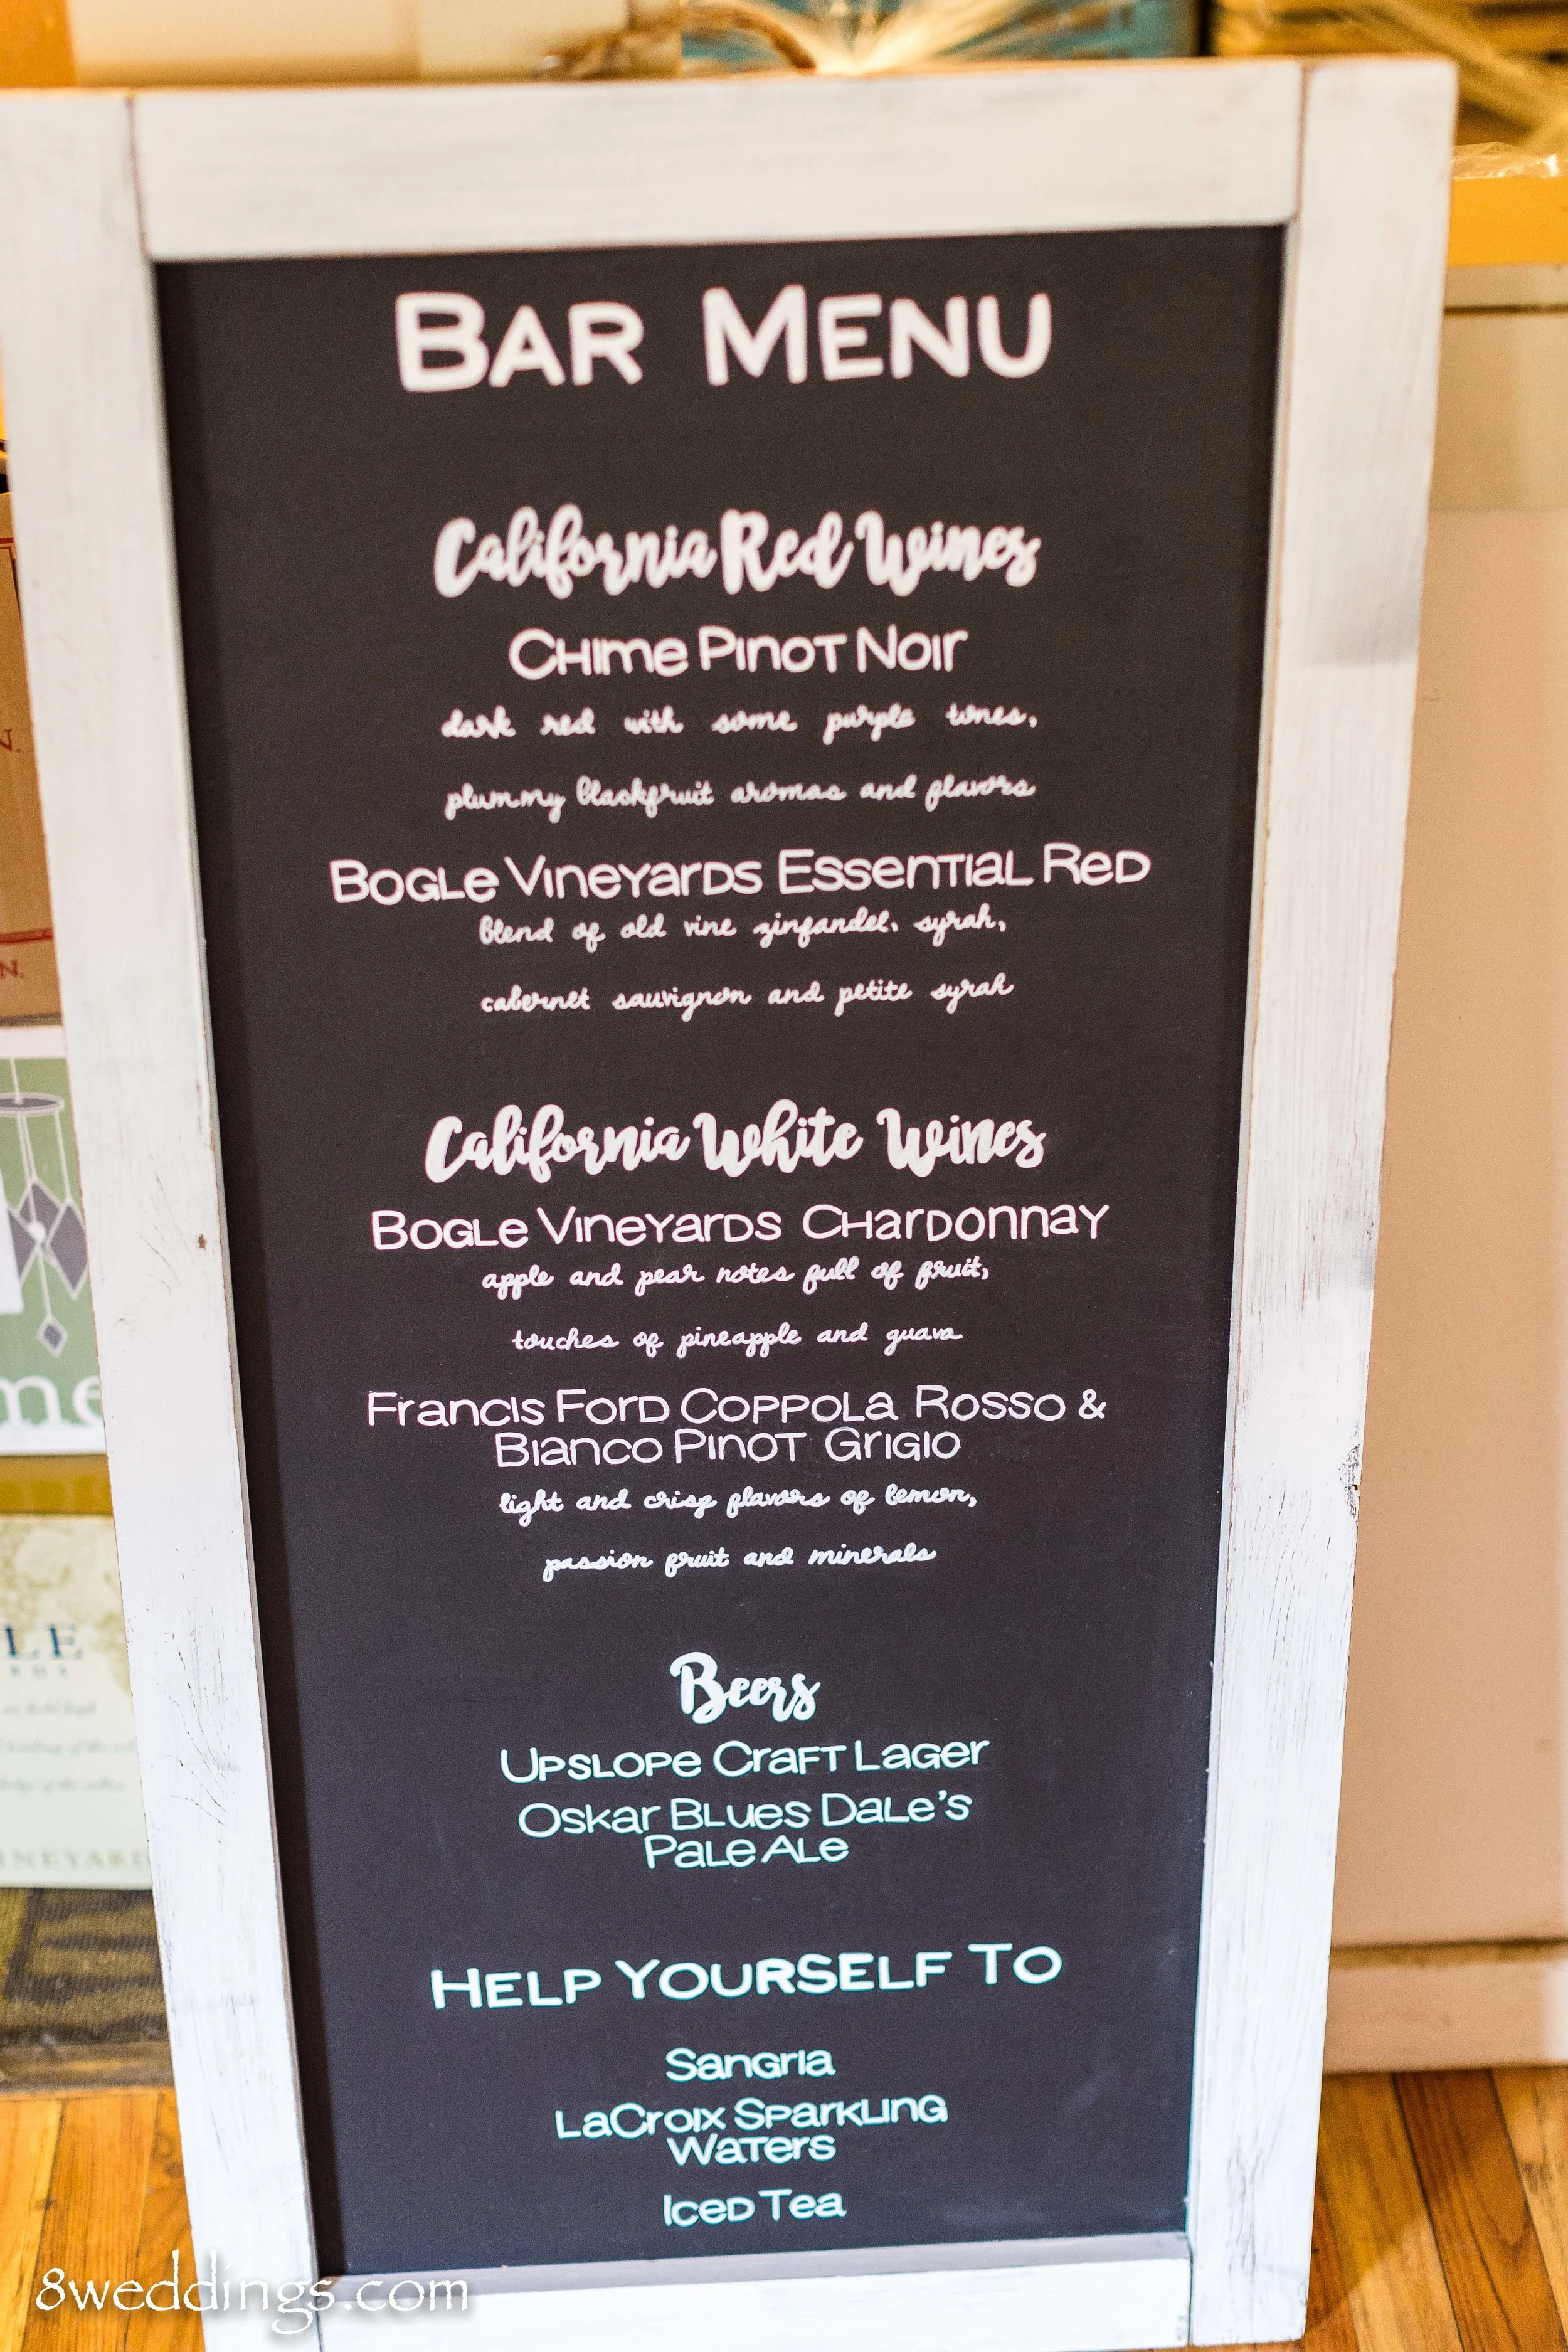 BAR MENU
California Red Wines
CHIME PINOT NOIR
dark red with some purple tones,
plummy blackfruit aromas and flavors
BOGLE VINEYARDS ESSENTIAL RED
blend of old vine zinfandel, syrah,
cabernet sauvignon and petite syrah
California White Wines
BOGLE VINEYARDS CHARDONNAY
apple and pear notes full of fruit,
touches of pineapple and guava
FRANCIS FORD COPPOLA ROSSO &
BIANCO PINOT GRIGIO
light and crisp flavors of lemon,
passion fruit and minerals
Beers
UPSLOPE CRAFT LAGER
OSKAR BLUES DALE'S
PALE ALE
HELP YOURSELF TO
SANGRIA
LACROIX SPARKLING
WATERS
ICED TEA
8weddings.com